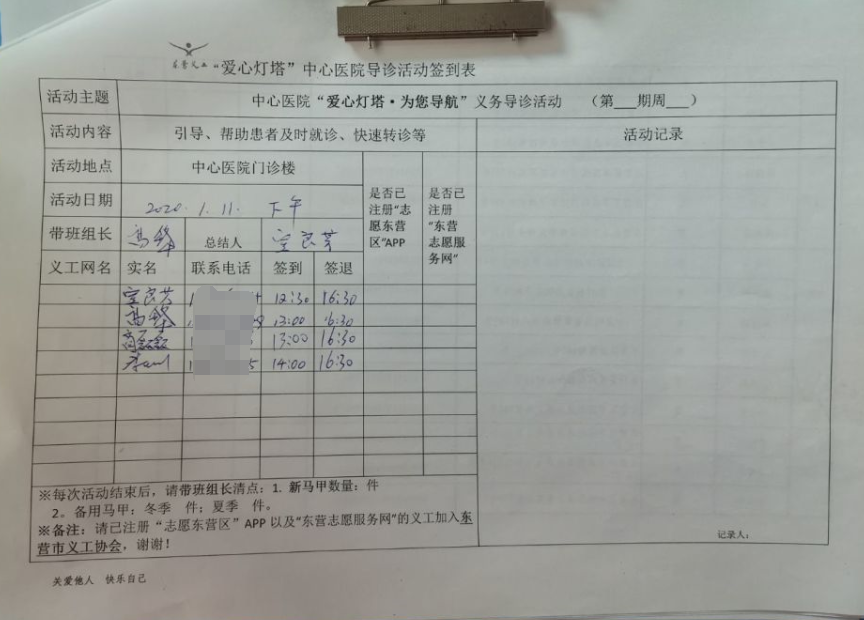 东营义工“爱心灯塔”中心医院导诊活动签到表
活动主题 中心医院“爱心灯塔·为您导航”义务导诊活动 （第___期周___）
活动内容 引导、帮助患者及时就诊、快速转诊等 活动记录
活动地点 中心医院门诊楼
是否已注册“志愿东营区”APP
是否已注册“东营志愿服务网”
活动日期 2020.1.11. 下午
带班组长 总结人
义工网名 实名 联系电话 签到 签退
12:30 16:30
13:00 16:30
13:00 16:30
14:00 16:30
※每次活动结束后，请带班组长清点：1. 新马甲数量： 件
2。备用马甲：冬季 件；夏季 件。
※备注：请已注册“志愿东营区”APP以及“东营志愿服务网”的义工加入东
营市义工协会，谢谢！
记录人：
关爱他人 快乐自己